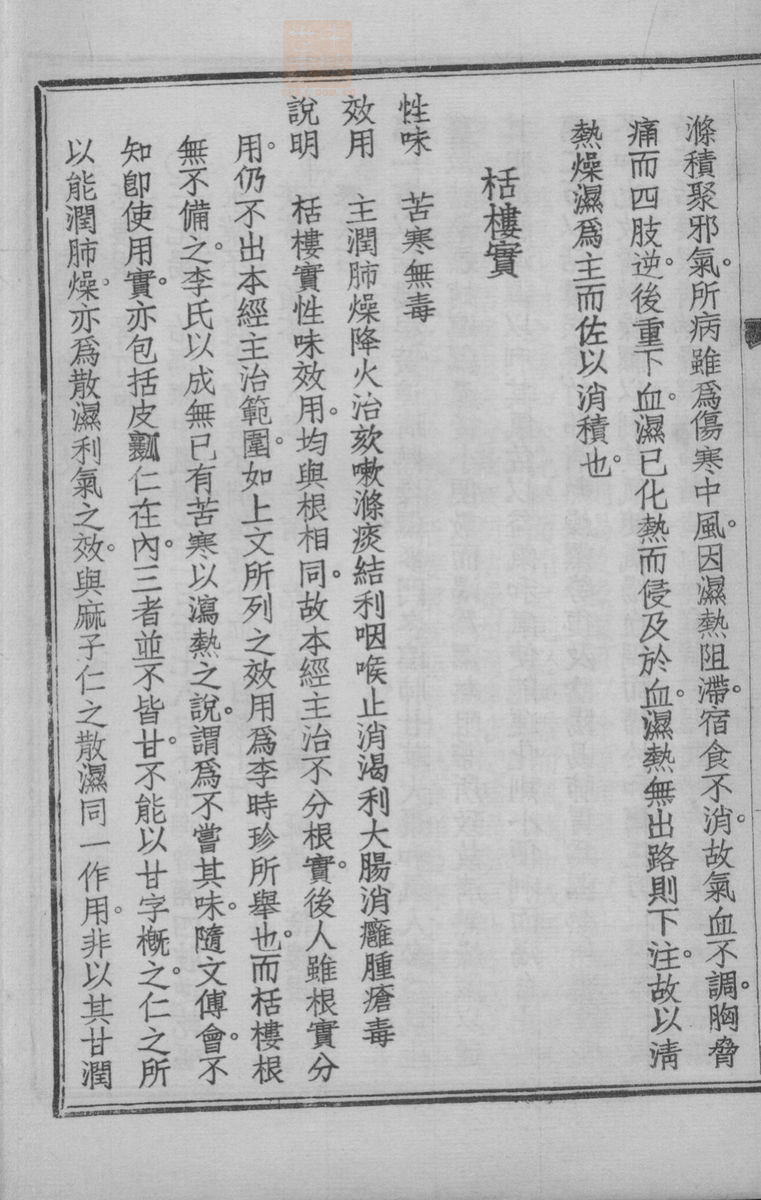 滌積聚邪氣。所病雖爲傷寒中風。因濕熱阻滯。宿食不消。故氣血不調。胸脅
痛而四肢逆。後重下血。濕已化熱而侵及於血。濕熱無出路則下注。故以淸
熱燥濕爲主而佐以消積也。
栝樓實
性味　苦寒無毒
效用　主潤肺燥降火治欬嗽滌痰結利咽喉止消渴利大腸消癰腫瘡毒
說明　栝樓實性味效用。均與根相同。故本經主治不分根實。後人雖根實分
用。仍不出本經主治範圍。如上文所列之效用爲李時珍所舉也。而栝樓根
無不備之。李氏以成無已有苦寒以瀉熱之說。謂爲不嘗其味。隨文傅會。不
知卽使用實。亦包括皮瓤仁在內。三者並不皆甘。不能以甘字概之。仁之所
以能潤肺燥。亦爲散濕利氣之效。與麻子仁之散濕同一作用。非以其甘潤